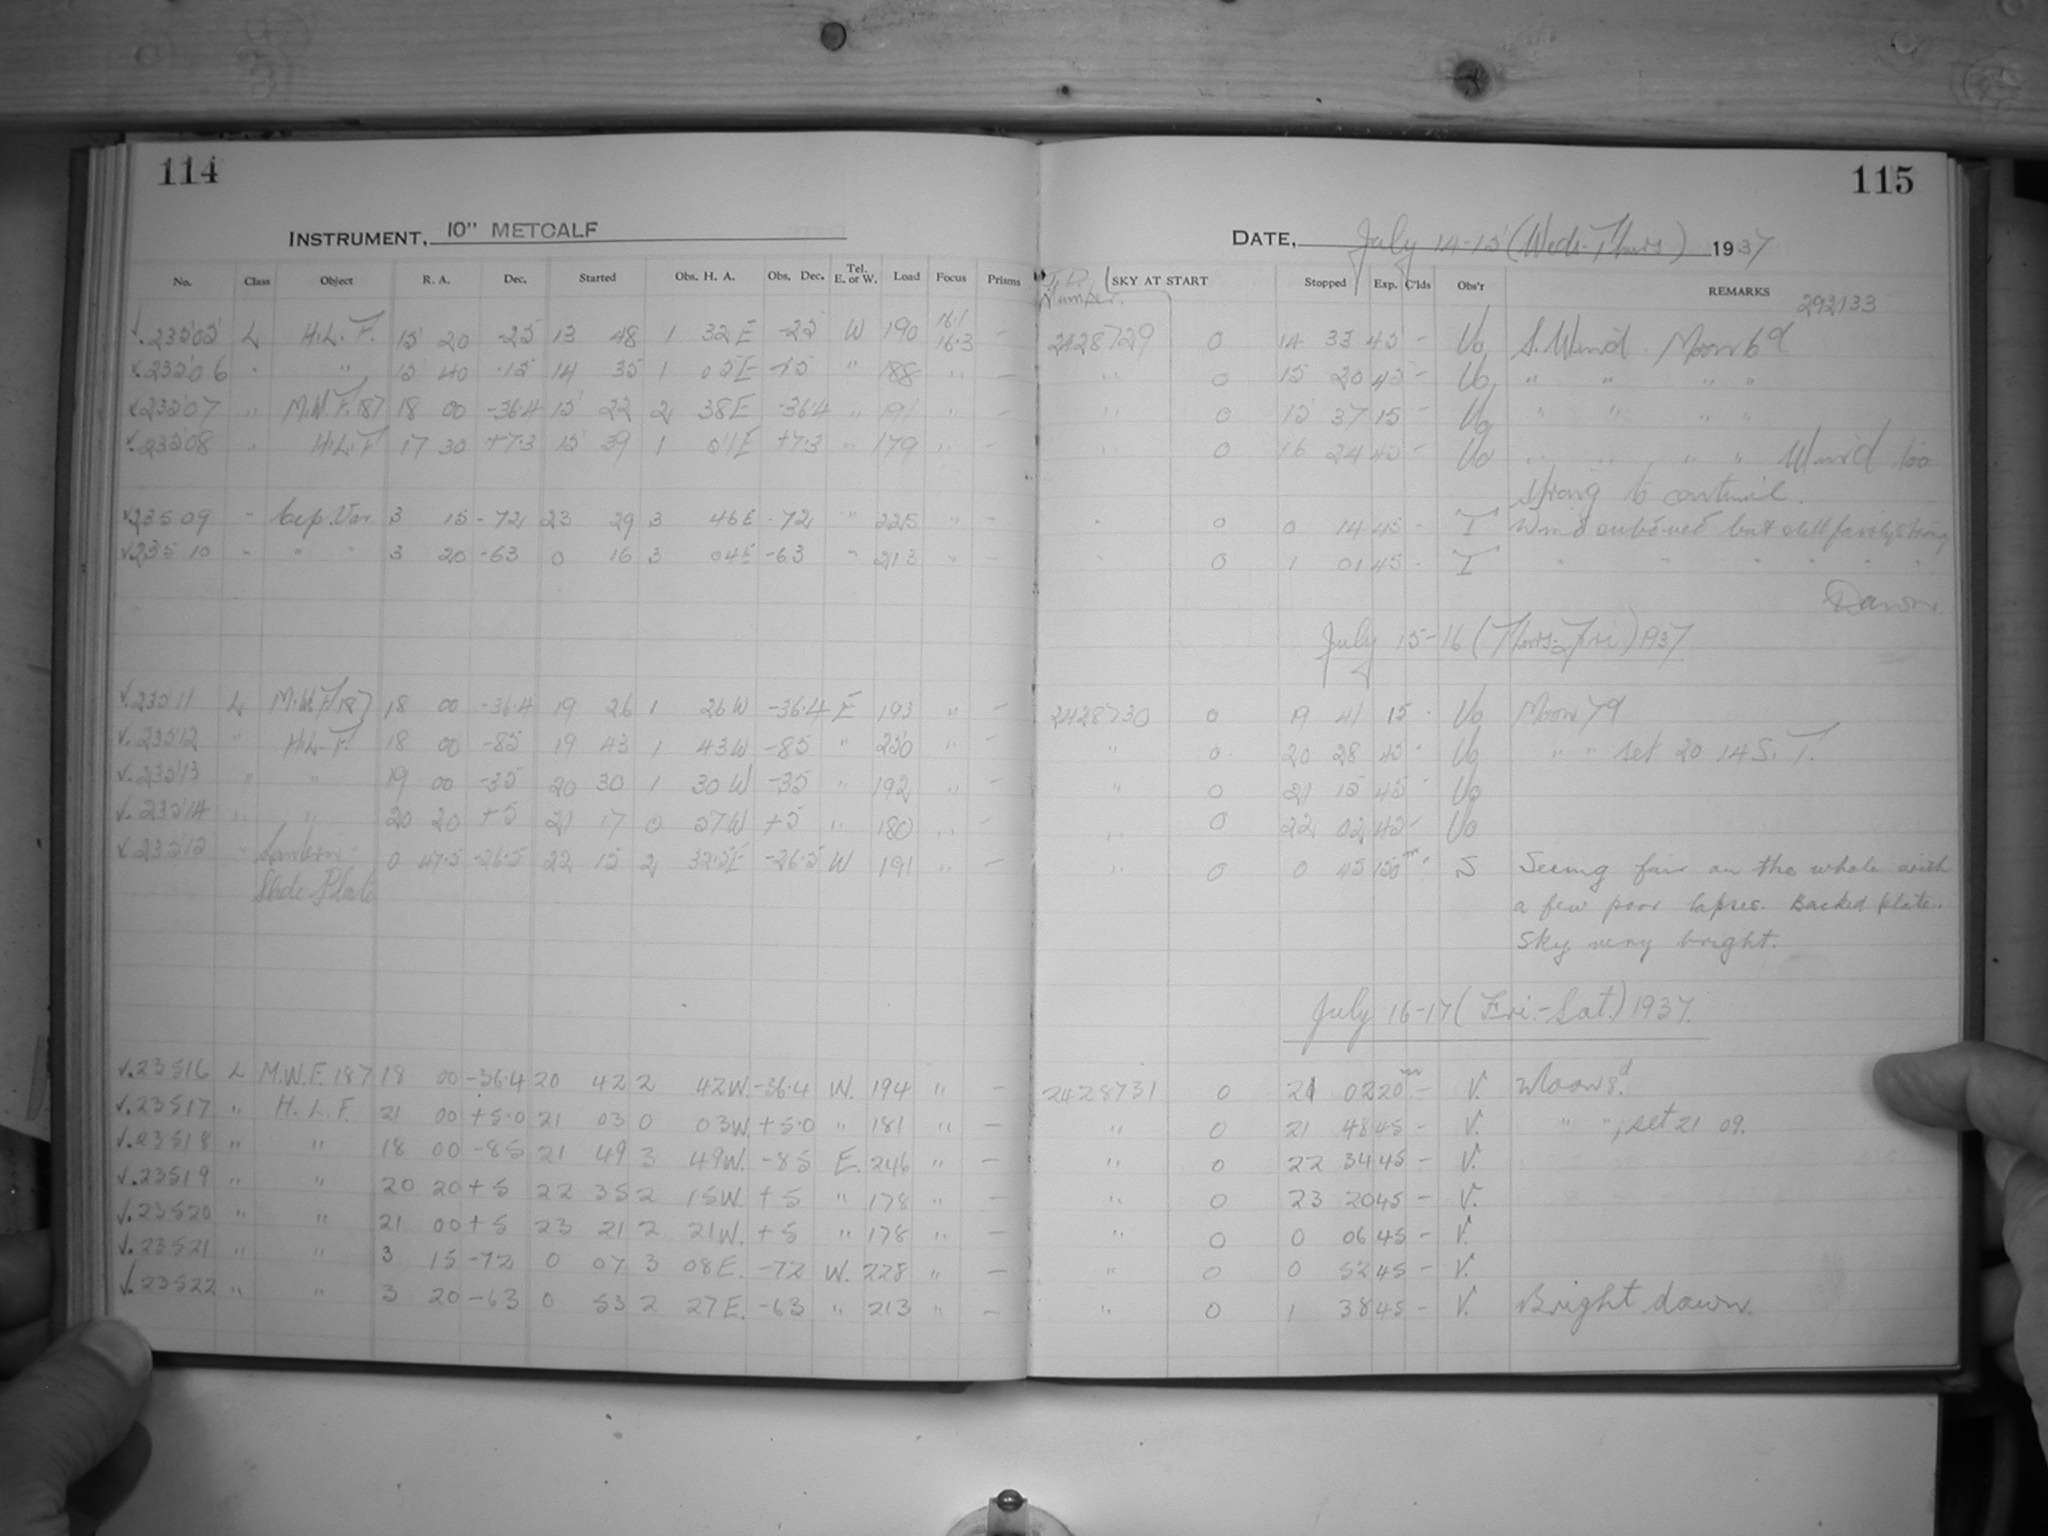 114
INSTRUMENT, 10" METCALF
No. Class Object R. A. Dec. Started Obs. H. A. Obs. Dec. Tel. E. or W. Load Focus Prisms
✓.23505 L H.L.F. 15 20 -25 13 48 1 32E -25 W 190 16.1 16.3 -
✓.23506 " " 15 40 -15 14 35 1 05E -15 " 188 " -
✓.23507 " M.W.F. 187 18 00 -36.4 15 22 2 38E -36.4 " 191 " -
✓.23508 " H.L.F 17 30 +7.3 15 39 1 51E +7.3 " 179 " -
✓.23509 " Cep. Var. 3 15 -72 23 29 3 46E -72 " 225 " -
✓.23510 " " " 3 20 -63 0 16 3 04E -63 " 213 " -
✓.23511 L M.W.F. 187 18 00 -36.4 19 26 1 26W -36.4 E 193 " -
✓.23512 " H.L.F. 18 00 -85 19 43 1 43W -85 " 250 " -
✓.23513 " " 19 00 -35 20 30 1 30W -35 " 192 " -
✓.23514 " " 20 20 +5 21 17 0 57W +5 " 180 " -
✓.23515 " Lantern 0 47.5 -26.5 22 15 2 32.5E -26.5 W 191 " -
Slide Plate
✓.23516 L M.W.F. 187 18 00 -36.4 20 42 2 42W. -36.4 W. 194 " -
✓.23517 " H.L.F. 21 00 +5.0 21 03 0 03W. +5.0 " 181 " -
✓.23518 " " 18 00 -85 21 49 3 49W. -85 E. 246 " -
✓.23519 " " 20 20 +5 22 35 2 15W. +5 " 178 " -
✓.23520 " " 21 00 +5 23 21 2 21W. +5 " 178 " -
✓.23521 " " 3 15 -72 0 07 3 08E. -72 W. 228 " -
✓.23522 " " 3 20 -63 0 53 2 27E. -63 " 213 " -
115
DATE, July 14-15 (Weds-Thurs) 1937
J.D. Number. SKY AT START Stopped Exp. C'lds Obs'r REMARKS 292133
2428729 0 14 33 45 - Vo S. Wind Moon 6d
" 0 15 20 45 - Vo " " " "
" 0 15 37 15 - Vo " " " "
" 0 16 24 45 - Vo " " " " Wind too
strong to continue.
" 0 0 14 45 - T Wind subdued but still fairly strong
" 0 1 01 45 - T " " " " " "
Dawn.
July 15-16 (Thurs-Fri) 1937
2428730 0 19 41 15 - Vo Moon 7d
" 0 20 28 45 - Vo " " set 20 14 S.T.
" 0 21 15 45 - Vo
" 0 22 02 45 - Vo
" 0 0 45 150m - S Seeing fair on the whole with
a few poor lapses. Backed plate.
Sky very bright.
July 16-17 (Fri.-Sat.) 1937.
2428731 0 21 02 20m - V. Moon 8.d
" 0 21 48 45 - V. " ", set 21 09.
" 0 22 34 45 - V.
" 0 23 20 45 - V.
" 0 0 06 45 - V.
" 0 0 52 45 - V.
" 0 1 38 45 - V. Bright dawn.